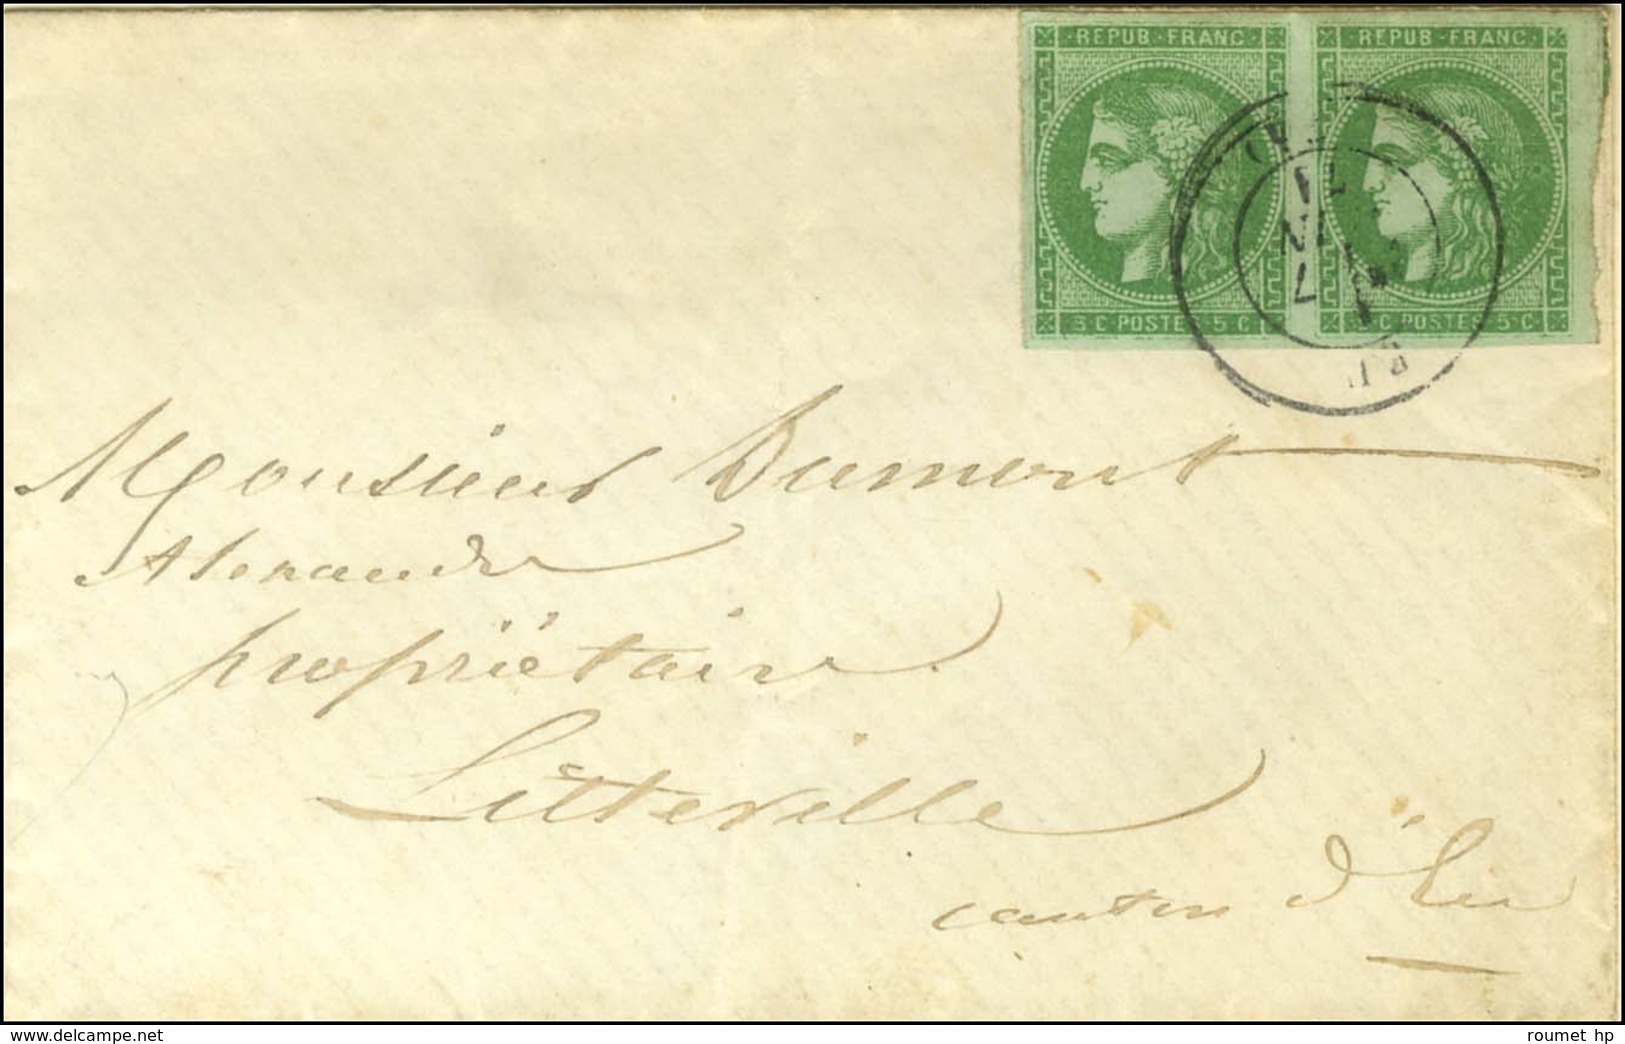 · REPUB · FRANC · · REPUB · FRANC ·
5 C POSTE 5 C 5 C POSTE 5 C
71
Monsieur Dumont
Alexandre
propriétaire
Litteville
canton d'Eu
www.delcampe.net roumet hp